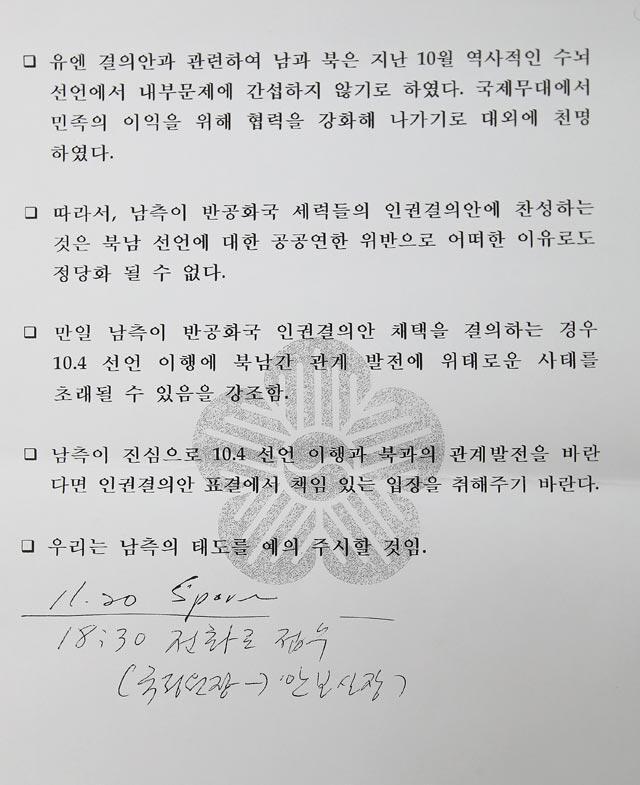 □ 유엔 결의안과 관련하여 남과 북은 지난 10월 역사적인 수뇌
선언에서 내부문제에 간섭하지 않기로 하였다. 국제무대에서
민족의 이익을 위해 협력을 강화해 나가기로 대외에 천명
하였다.
□ 따라서, 남측이 반공화국 세력들의 인권결의안에 찬성하는
것은 북남 선언에 대한 공공연한 위반으로 어떠한 이유로도
정당화 될 수 없다.
□ 만일 남측이 반공화국 인권결의안 채택을 결의하는 경우
10.4 선언 이행에 북남간 관계 발전에 위태로운 사태를
초래될 수 있음을 강조함.
□ 남측이 진심으로 10.4 선언 이행과 북과의 관계발전을 바란
다면 인권결의안 표결에서 책임 있는 입장을 취해주기 바란다.
□ 우리는 남측의 태도를 예의 주시할 것임.
11.20
18:30 전화로 접수
(국정원장→안보실장)